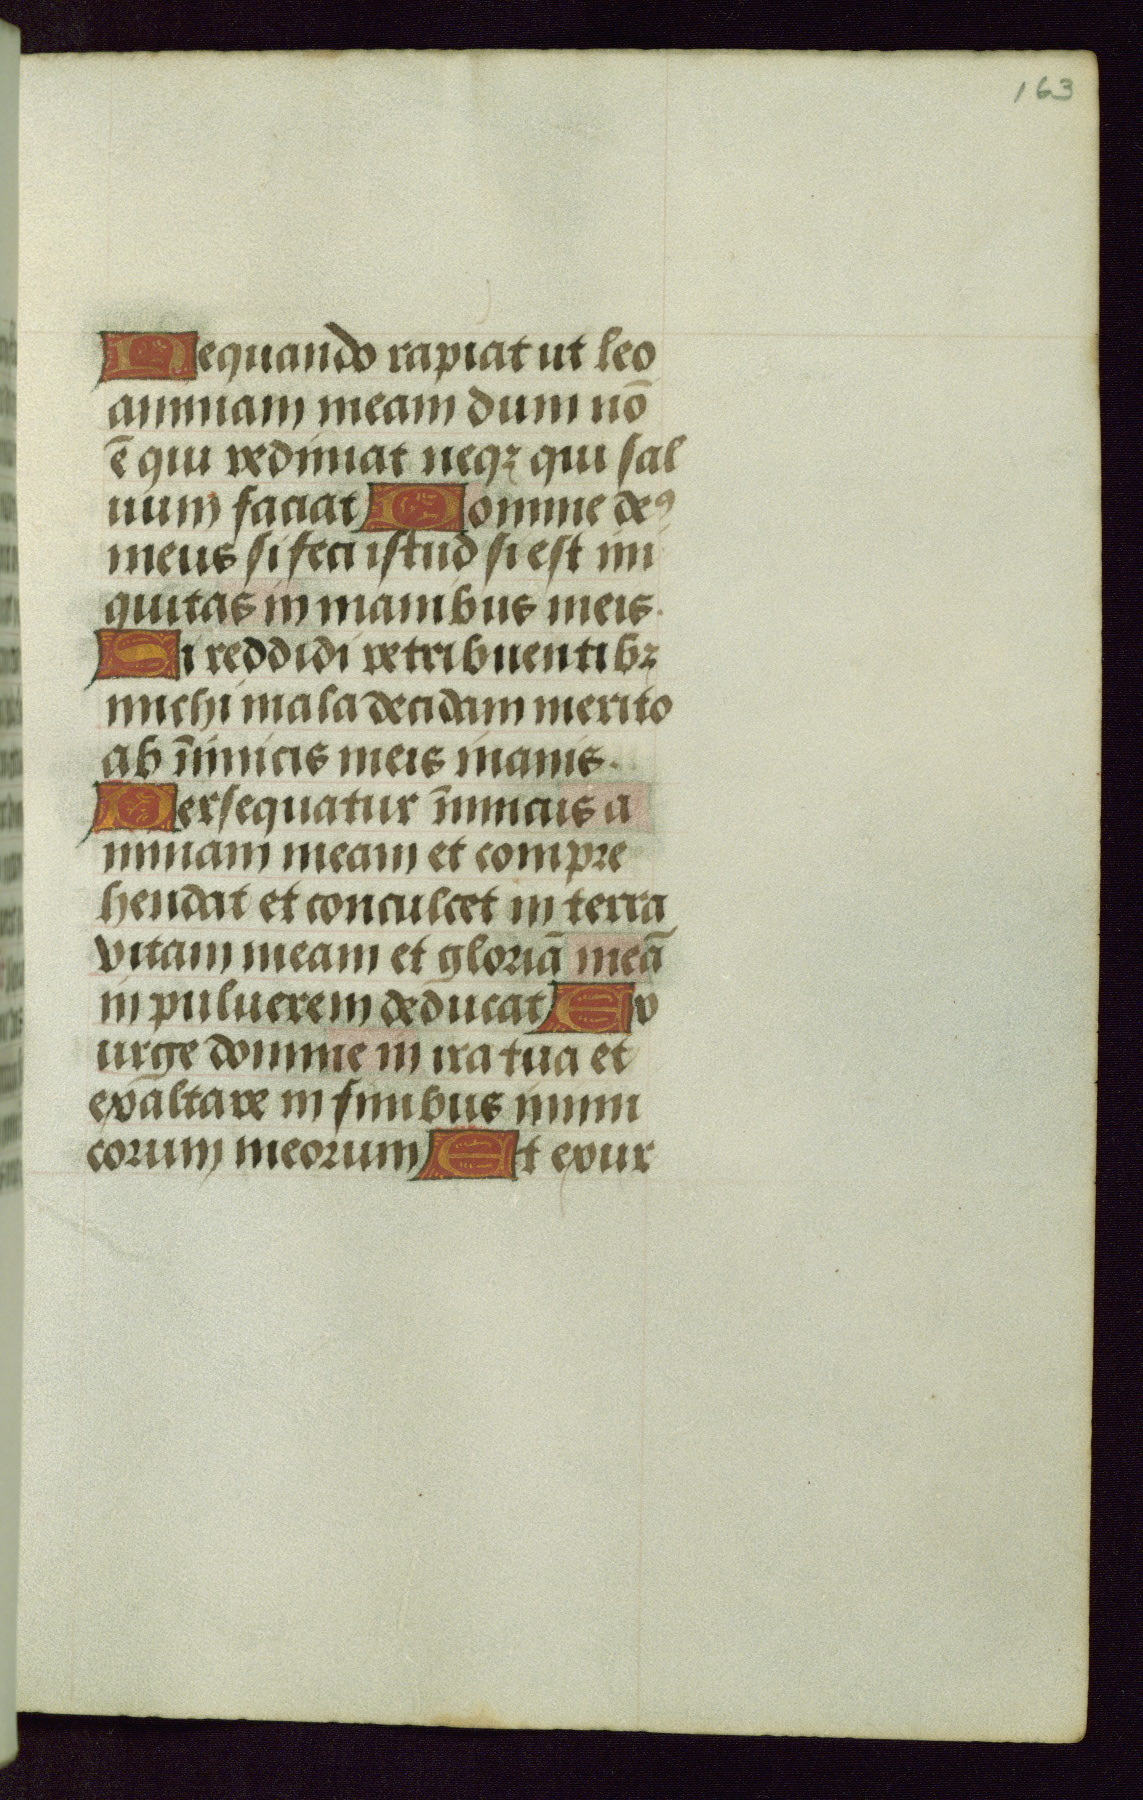 163
Nequando rapiat ut leo
animam meam dum nō
ē qui redimat neqꝫ qui sal
uum faciat Domine deꝰ
meus si feci istud si est ini
quitas in manibus meis.
Si reddidi retribuentibꝫ
michi mala decidam merito
ab inimicis meis inanis.
Persequatur inimicus a
nimam meam et compre
hendat et conculcet in terra
vitam meam et gloriā meā
in puluerem deducat Ex
urge domine in ira tua et
exaltare in finibus inimi
corum meorum Et exur